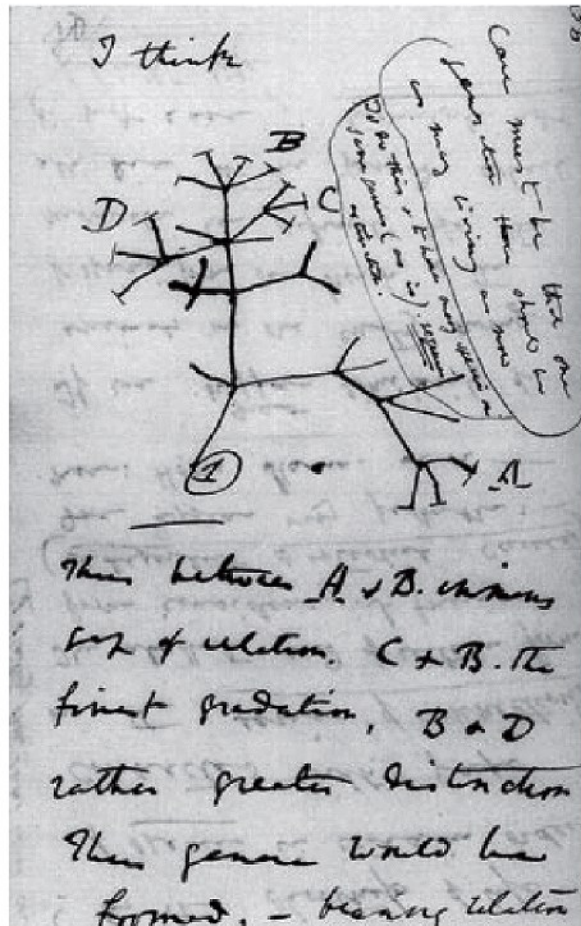 I think
B
C
D
A
1
Case must be that one
generation then should be
as many living as now
To do this & to have many species in
same genus (as is). requires
extinction.
Thus between A & B. immense
gap of relation. C & B. the
finest gradation, B & D
rather greater distinction
Thus genera would be
formed. — bearing relation